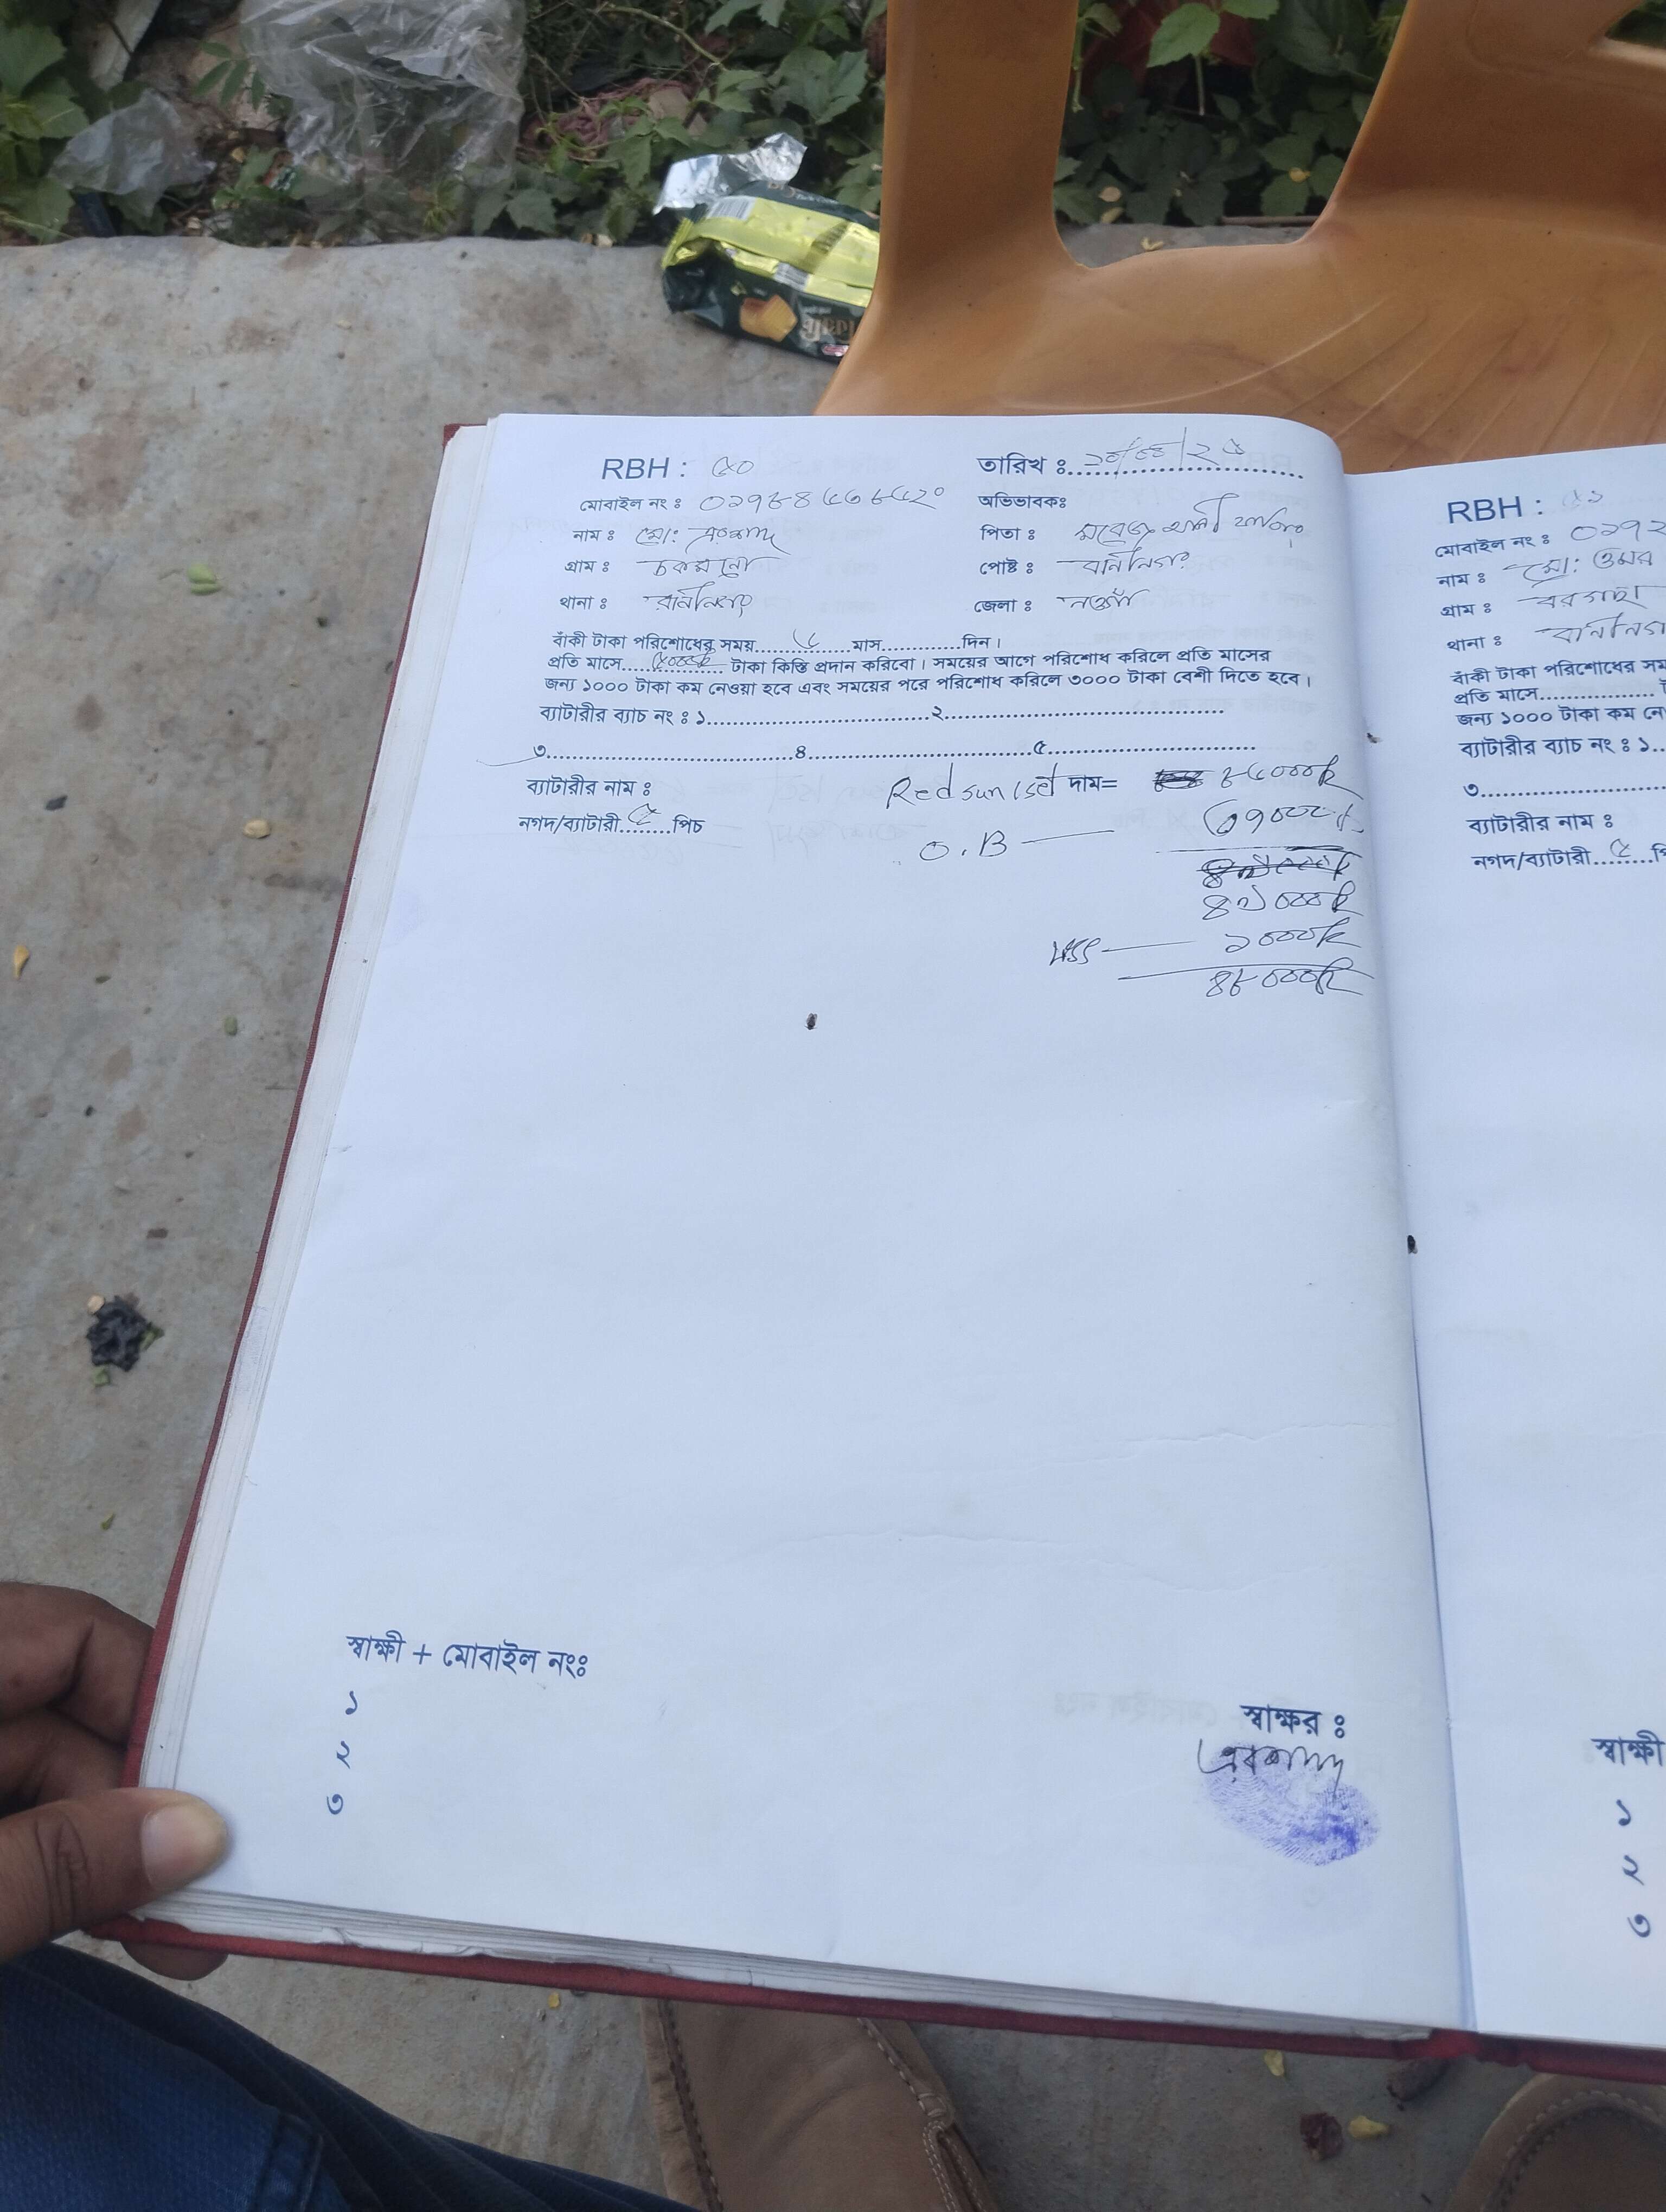 RBH : ৫০
তারিখ ঃ ১০/০৪/২৫
মোবাইল নং ঃ
অভিভাবকঃ
নাম ঃ মো: এরশাদ
পিতা ঃ
গ্রাম ঃ
পোষ্ট ঃ রানীনগর
থানা ঃ রানীনগর
জেলা ঃ নওগাঁ
বাঁকী টাকা পরিশোধের সময়..............মাস.............দিন।
প্রতি মাসে.................. টাকা কিস্তি প্রদান করিবো। সময়ের আগে পরিশোধ করিলে প্রতি মাসের
জন্য ১০০০ টাকা কম নেওয়া হবে এবং সময়ের পরে পরিশোধ করিলে ৩০০০ টাকা বেশী দিতে হবে।
ব্যাটারীর ব্যাচ নং ঃ ১......................................২................................................
৩...........................................৪.......................................৫....................................
ব্যাটারীর নাম ঃ
Red sun 1set দাম= ৮৬০০০
নগদ/ব্যাটারী ৫ পিচ
O.B — ৩৭০০০
৪৯০০০
১০০০
৪৮০০০
স্বাক্ষী + মোবাইল নংঃ
১
২
৩
স্বাক্ষর ঃ
এরশাদ
RBH : ৫১
মোবাইল নং ঃ ০১৭২
নাম ঃ মো: ওমর
গ্রাম ঃ বরগাছা
থানা ঃ রানীনগ
বাঁকী টাকা পরিশোধের সম
প্রতি মাসে..................
জন্য ১০০০ টাকা কম নে
ব্যাটারীর ব্যাচ নং ঃ ১..
৩...........................
ব্যাটারীর নাম ঃ
নগদ/ব্যাটারী ৫ পি
স্বাক্ষী
১
২
৩